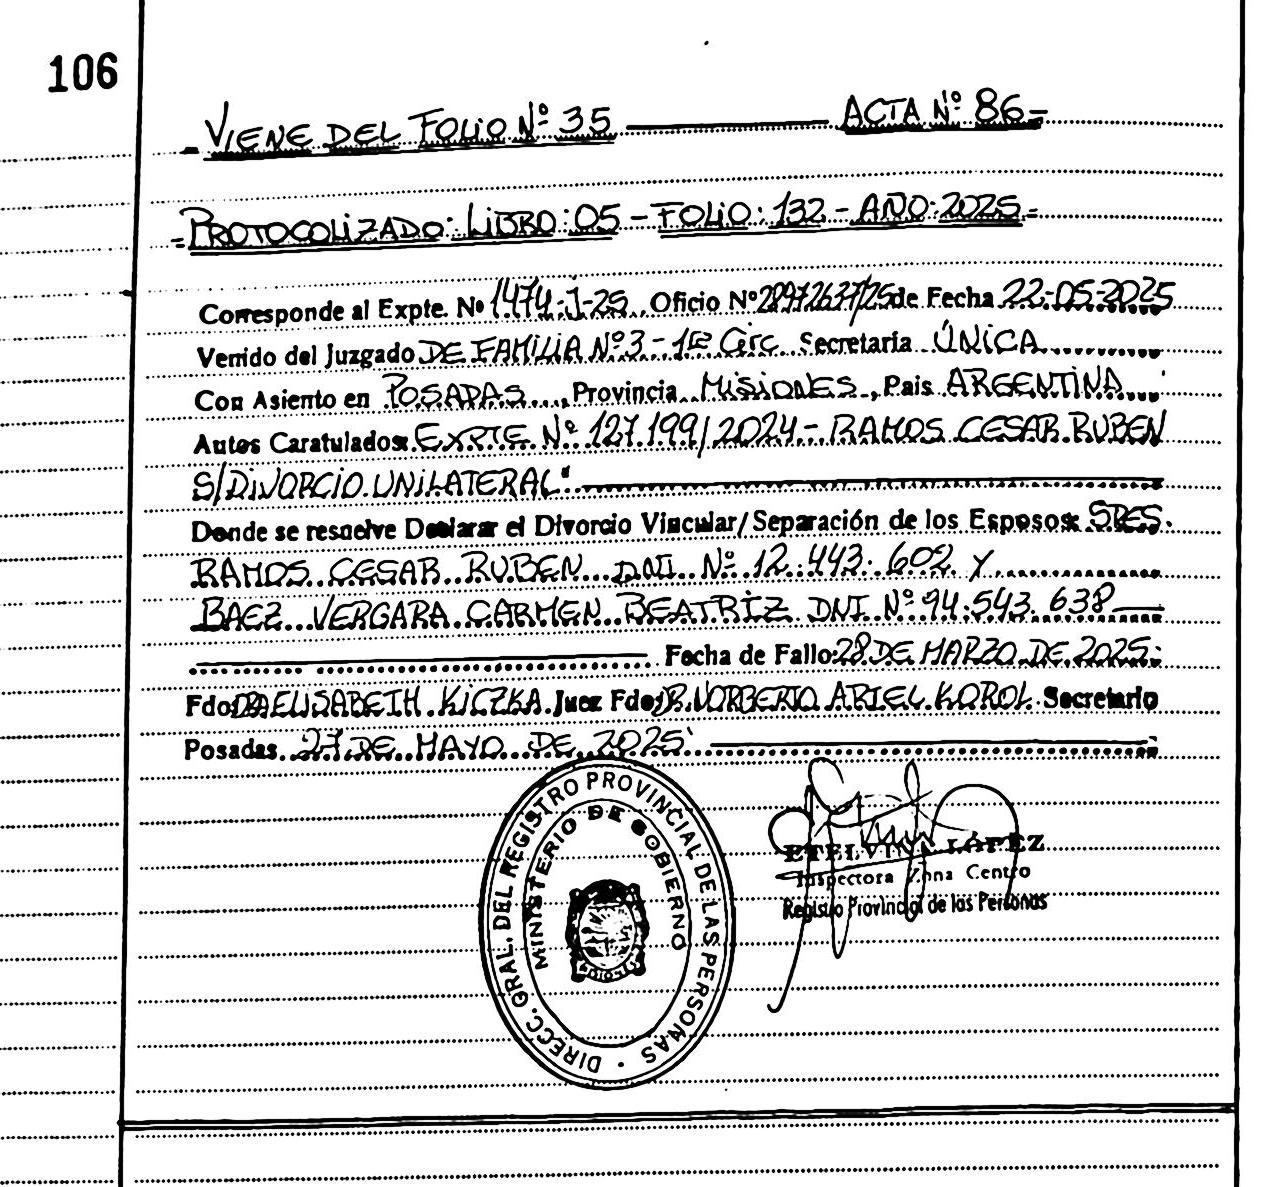 106
- VIENE DEL FOLIO Nº 35 ———— ACTA Nº 86 -
- PROTOCOLIZADO: LIBRO: 05 - FOLIO: 132 - AÑO: 2025 -
Corresponde al Expte. Nº 1474-J-25 Oficio Nº 28972637/25 de Fecha 22-05-2025
Venido del Juzgado DE FAMILIA Nº 3 - 1ra Circ Secretaria ÚNICA
Con Asiento en POSADAS, Provincia MISIONES, Pais ARGENTINA
Autos Caratulados: EXPTE Nº 127.199/2024 - RAMOS CESAR RUBEN
S/DIVORCIO UNILATERAL"
Donde se resuelve Declarar el Divorcio Vincular/Separación de los Esposos: SRES.
RAMOS CESAR RUBEN DNI Nº 12.443.602 Y
BAEZ VERGARA CARMEN BEATRIZ DNI Nº 94.543.638
Fecha de Fallo: 28 DE MARZO DE 2025
Fdo: DRA ELISABETH KICZKA Juez Fdo: DR. NORBERTO ARIEL KOROL Secretario
Posadas 27 DE MAYO DE 2025
DIRECC. GRAL. DEL REGISTRO PROVINCIAL DE LAS PERSONAS
MINISTERIO DE GOBIERNO
ETELVINA LÓPEZ
Inspectora Zona Centro
Registro Provincial de las Personas